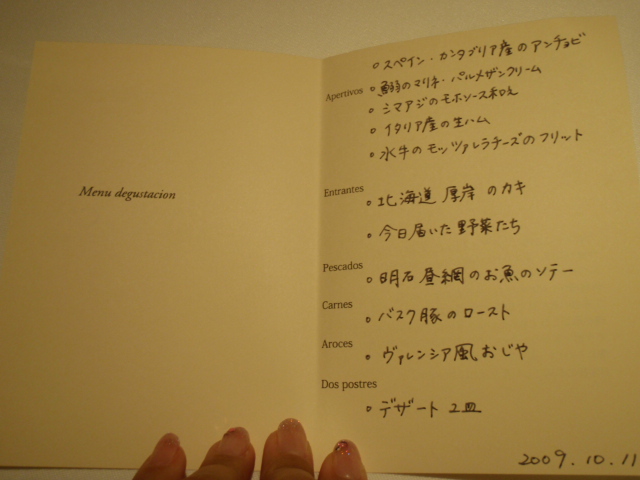 Menu degustacion
○スペイン・カンタブリア産のアンチョビ
Apertivos ○鰯のマリネ・パルメザンクリーム
○シマアジのモホソース和え
○イタリア産の生ハム
○水牛のモッツァレラチーズのフリット
Entrantes
○北海道 厚岸 のカキ
○今日届いた野菜たち
Pescados
○明石 昼網のお魚のソテー
Carnes
○バスク豚のロースト
Aroces
○ヴァレンシア風おじや
Dos postres
○デザート 2皿
2009.10.11